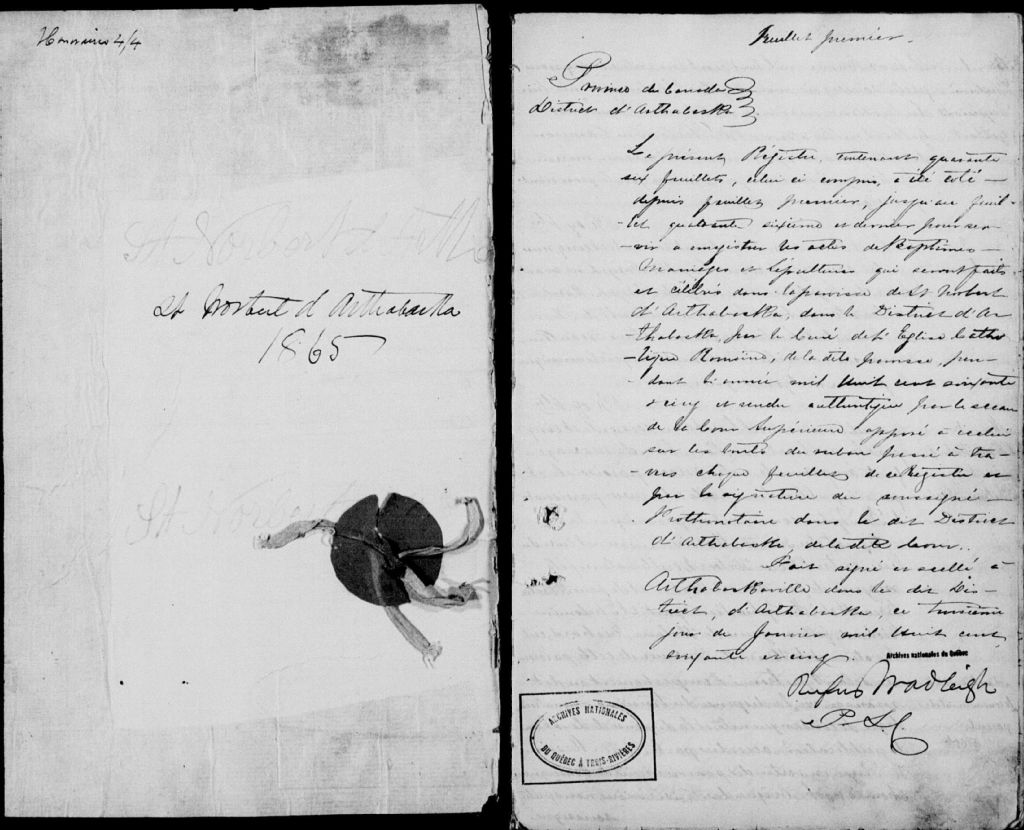 Honoraires 4/4
St Norbert d'Arthabaska
St Norbert d Arthabaska
1865
St Norbert
Feuillet premier.
Province du Canada
District d'Arthabaska
Le présent Régistre, contenant quarante
six feuillets, celui ci compris, a été coté
depuis feuillet premier, jusqu'au feuil-
-let quarante sixième et dernier pour ser-
-vir a enregistrer les actes de Baptêmes
Mariages et Sépultures qui seront faits
et célébrés dans la paroisse de St Norbert
d'Arthabaska, dans le District d'Ar
-thabaska, par le Curé de l'Eglise Catho
-lique Romaine, de la dite paroisse, pen-
-dant l'année mil huit cent soixante
& cinq et rendu authentique par le sceau
de la Cour Supérieure apposé à
sur les bouts du ruban passé à tra-
-vers chaque feuillet de ce Régistre et
par la signature du soussigné
Prothonotaire dans le dit District
d'Arthabaska, de la dite Cour.
Fait signé et scellé à
Arthabaskaville dans le dit Dis-
-trict, d'Arthabaska, ce troisième
jour de Janvier mil huit cent
soixante et cinq.
Archives nationales du Québec
Rufus Wadleigh
P. S. C.
ARCHIVES NATIONALES
DU QUÉBEC À TROIS-RIVIÈRES